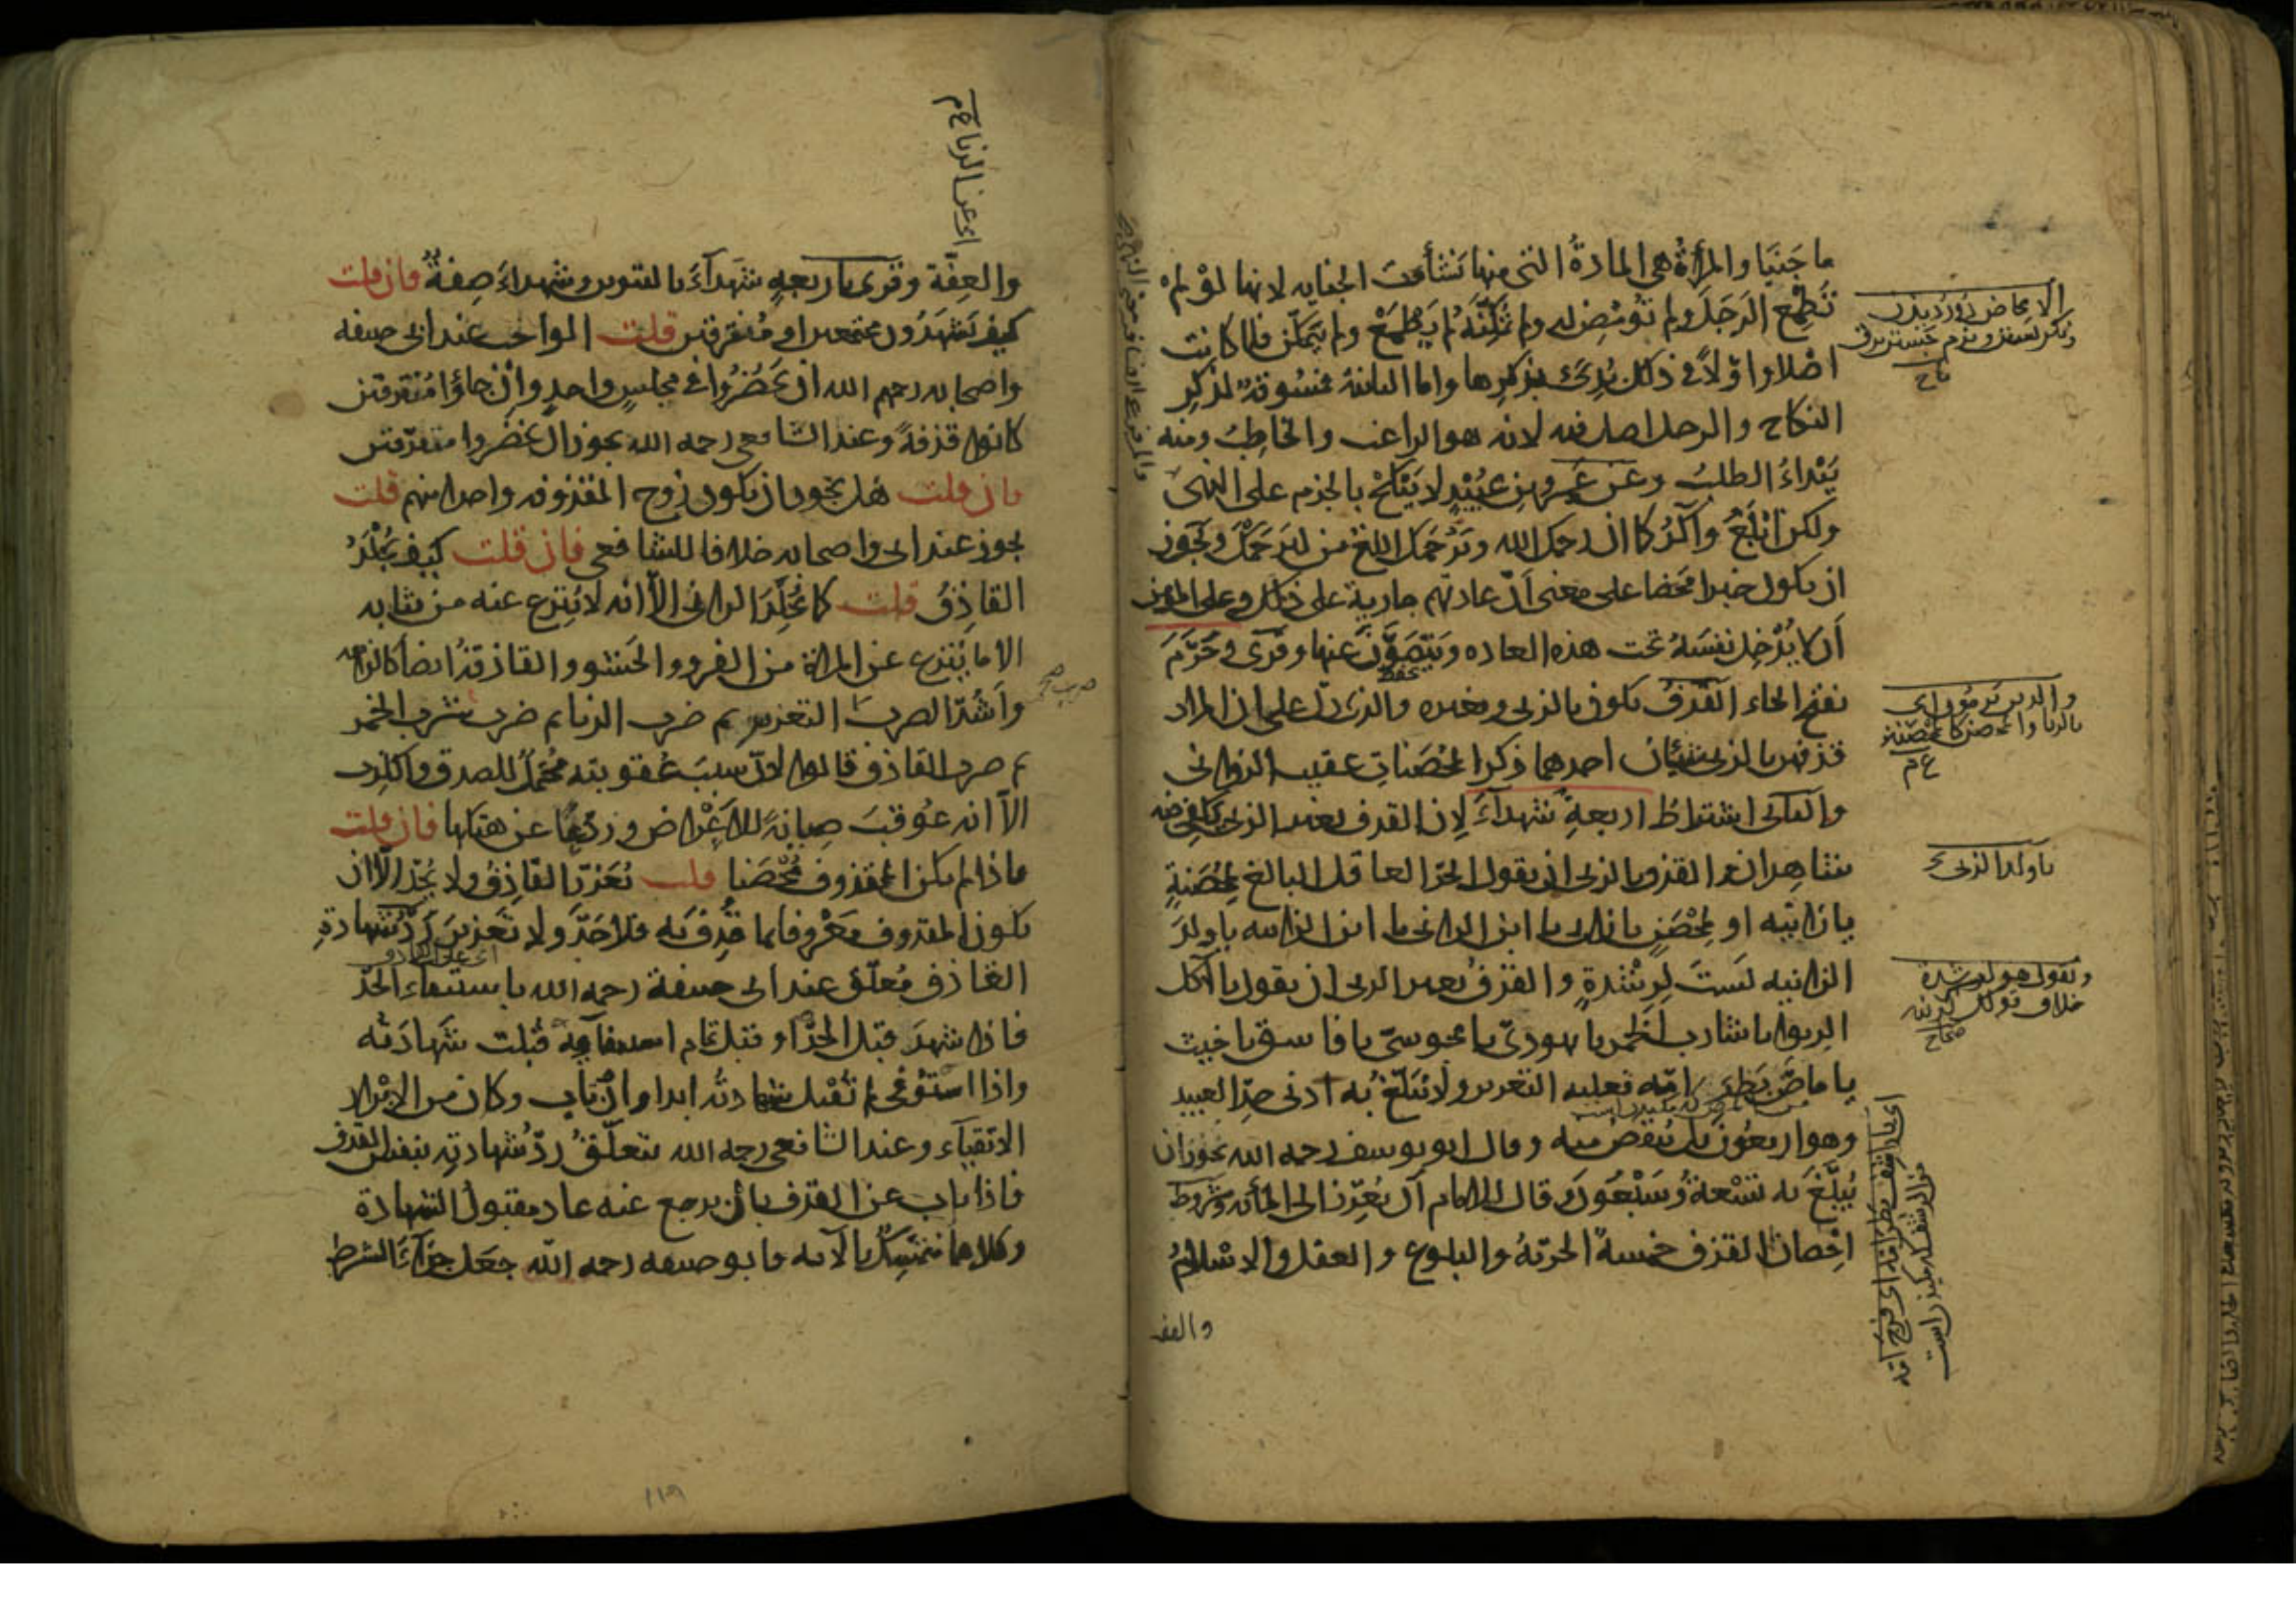 ما جَنَيَا والمرأةُ هي المادةُ التي منها نَشأت الجنايه لانها لوْ لمْ
تُطمِع الرَجَلَ ولم تُومِض له ولم تُمَكِّنْهُ لم يَطْمَعْ ولم يتمكّن فلما كانت
اصْلا واوّلاً في ذلك بُدِئَ بذكرِها واما الثانية فمسُوقةٌ لذكرِ
النكاح والرجل اصل فيه لانه هو الراغب والخاطِبُ ومنه
يُبْدَاءُ الطلبُ وعن عَمرِو بنِ عُبَيْدٍ لا يَنكِحْ بالجزم على النهي
ولكن ابْلَغُ وآكدُ كما ان رحمك الله ويَرْحَمُك ابلغ من لِيَرْحَمْكَ ويجوز
ان يكول خبرا مَحْضا على معنى اَنّ عادتهم جارية على ذلك وعلى المؤمن
اَن لا يُدْخِل نفسَهُ تحت هذه العاده ويَتصَوَّنَ عنها وقرئ وحَرَّمَ
بفتح الحاء القَذفُ يكون بالزنى وبغيره والذي دلّ على ان المراد
قذفهن بالزنى شيئان احدهما ذكرُ المُحْصَناتِ عقيب الزواني
والثاني اشتراطُ اربعةِ شهداءَ لاِن القذف بغير الزنى يكفى فيه
شاهدان والقذف بالزنى ان يقول الحرّ العاقل البالغ لمُحْصَنةٍ
يا زانيه او لمُحْصَنٍ يا زانى يا ابن الزانى يا ابن الزانيه يا ولدَ
الزانيه لَستَ لرِشْدةٍ والقذفُ بغير الزنى ان يقول يا آكل
الرِبوا يا شارب الخمر يا يهوديّ يا مجوسيّ يا فاسق يا خبيث
يا ماصّ بَظْرِ امّه فعليه التعزير ولا يُبْلَغ به ادنى حدّ العبيد
وهو اربعُون بل يُنقَصُ منه وقال ابو يوسف رحمه الله يجُوز ان
يُبْلَغَ به تسْعةٌ وسَبْعُونَ وقال للامام أن يُعَزِّرَ الى المائه وشروط
اِحْصان القذف خمسةٌ الحرّيةُ والبلوغ والعقل والاِسْلامُ
والعفـ
الايماض
تاج
والذين يرمُون اى
بالزنا
يا ولد الزنىَ
وتقول هو لرشدة
خلاف قولك لزنية
صحاح
والعِفّة وقرئ باربعةٍ شُهَداءَ بالتنوين وشهداءَ صِفةٌ فان قلت
كيف يَشهَدُون مجتمعين او مُتفرقين قلت الواجب عند ابى حنيفه
واصحابه رحمهم الله ان يَحْضُرُوا في مجلسٍ واحدٍ وانْ جاؤا مُتفرقين
كانوا قذفةً وعند الشافعى رحمه الله يجوز ان يحضُروا متفرّقين
فان قلت هل يجوز ان يكون زوج المقذوفه واحدا منهم قلت
يجوز عند ابى واصحابه خلافا للشافعى فان قلت كيف يُجْلَدُ
القاذِفُ قلت كما يُجْلَدُ الزانى الاّ انه لا يُنزع عنه من ثيابه
الا ما يُنزع عن المراة من الفرو والحشو والقاذفةُ ايضا كالزانيه
واَشَدّ الضربَ التعزير ثم ضرب الزنا ثم ضرب شرب الخمر
ثم ضرب القاذف قالوا لاِنّ سببَ عُقوبته مُحْتَمِلٌ للصدق والكذب
الاّ انه عُوقبَ صِيانةً للاَعْراض ورَدْعًا عن هتكها فان قلت
فاذا لم يكن المقذوف مُحْصَنا قلت يُعَزّرُ القاذِفُ ولا يُحَدّ الاّ ان
يكون المقذوف مَعْروفا بما قُذِفَ به فلا حَدَّ ولا تعزيرَ ردُّ شهادةِ
القاذف مُعلّق عند ابى حنيفة رحمه الله باستيفاء الحدّ
فاذا شهدَ قبْل الحدّ او قبْل تمام استيفائه قُبلت شهادَته
واذا استُوْفى لم تُقبَل شهادته ابدا وان تاب وكان من الابْرارِ
الاتقياء وعند الشافعى رحمه الله يتعلّقُ ردّ شهادتِه بنفس القذف
فاذا تاب عن القذف بان يرجع عنه عاد مقبولَ الشهادة
وكلاهما متمسّكٌ بالآيه فابو حنيفه رحمه الله جعَل جزاءَ الشرط
اى عن الزنا
١١٩